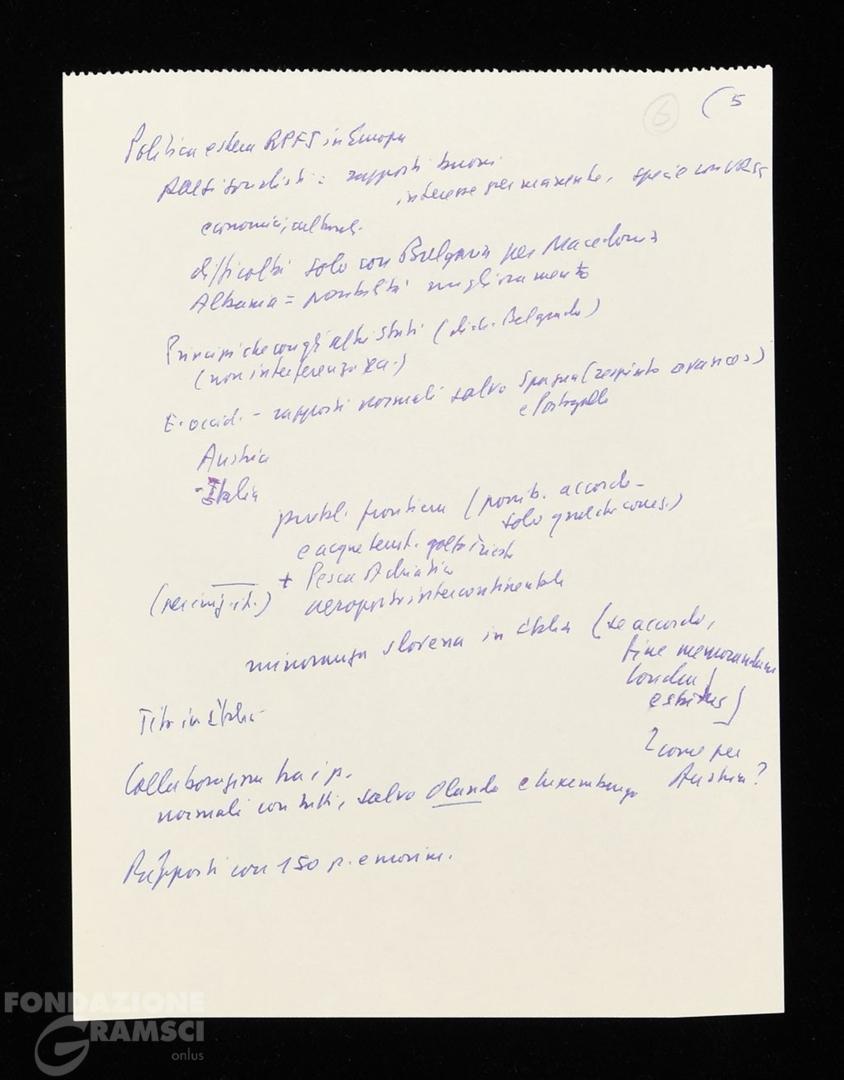 6 (5
Politica estera RPFJ in Europa
Paesi socialisti = rapporti buoni
interesse permanente, specie con URSS
economici, culturali
difficoltà solo con Bulgaria per Macedonia
Albania = possibilità miglioramento
Principi che con gli altri Stati (dich. Belgrado)
(non interferenza ecc.)
E. occid. - rapporti normali salvo Spagna (respinto avances)
e Portogallo
Austria
- Italia
probl. frontiera (possib. accordo -
solo qualche)
e acque territ. golfo Trieste
+ Pesca Adriatico
aeroporto intercontinentale
minoranza slovena in Italia (se accordo,
fine memorandum
Londra
come per
Austria?
Tito in Italia
Collaborazione tra i p.
normali con tutti, salvo Olanda e Lussemburgo
Rapporti con 150 p. e movim.
FONDAZIONE
GRAMSCI
onlus